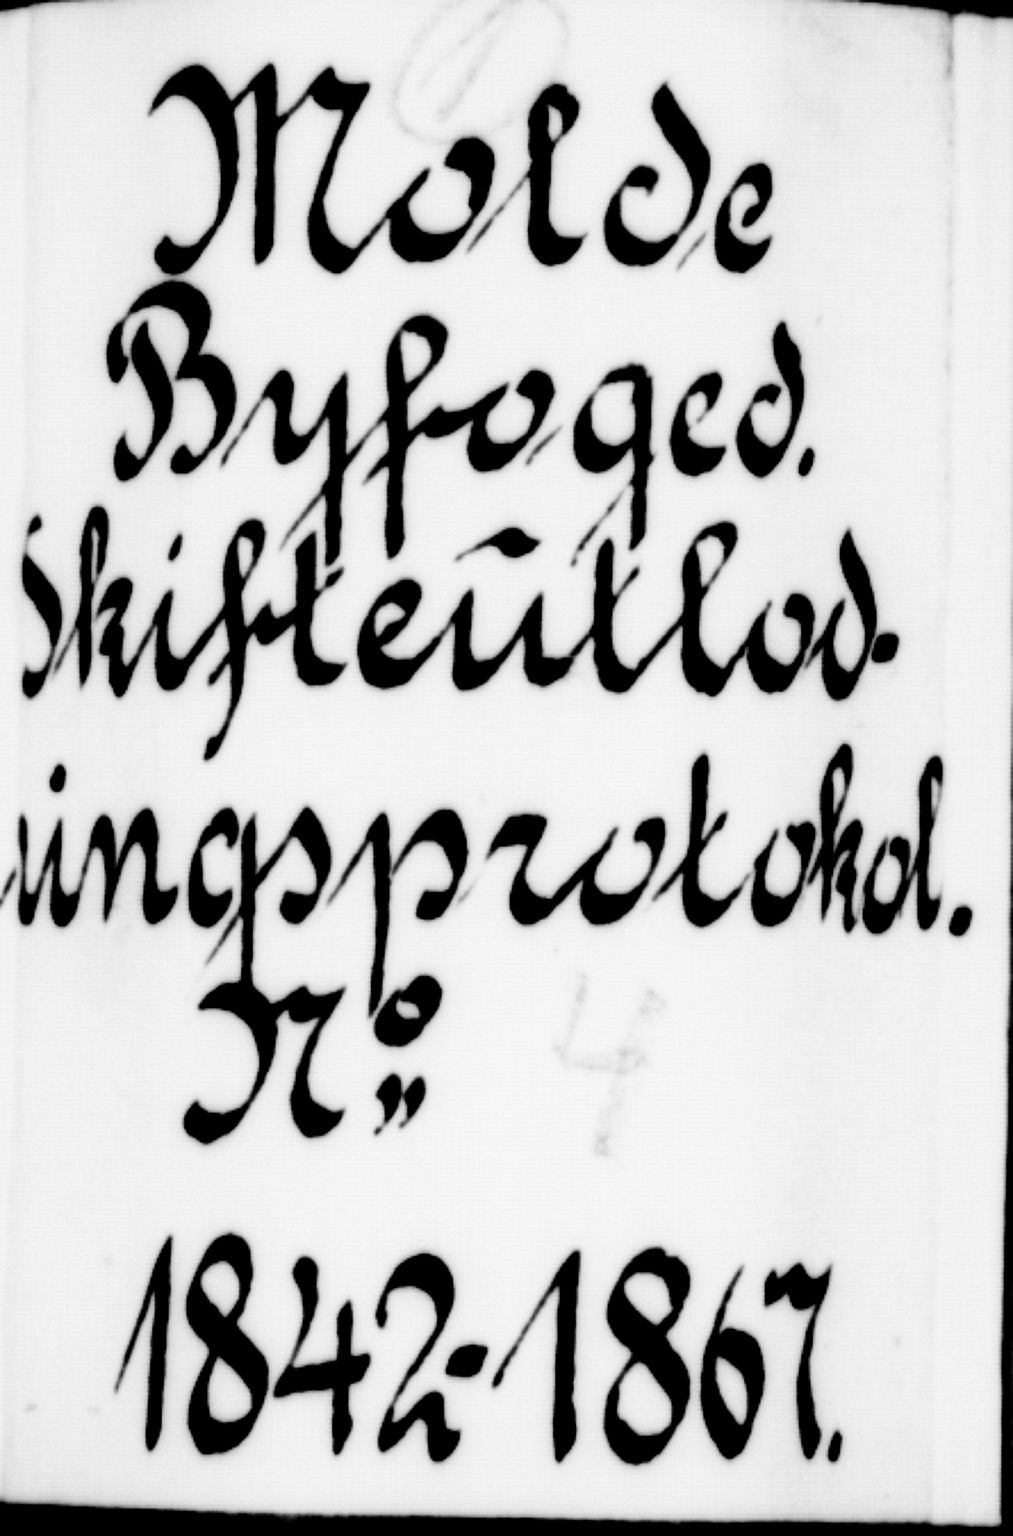 Molde
Byfoged.
Skifteutlod-
ningsprotokol.
No 4
1842-1867.